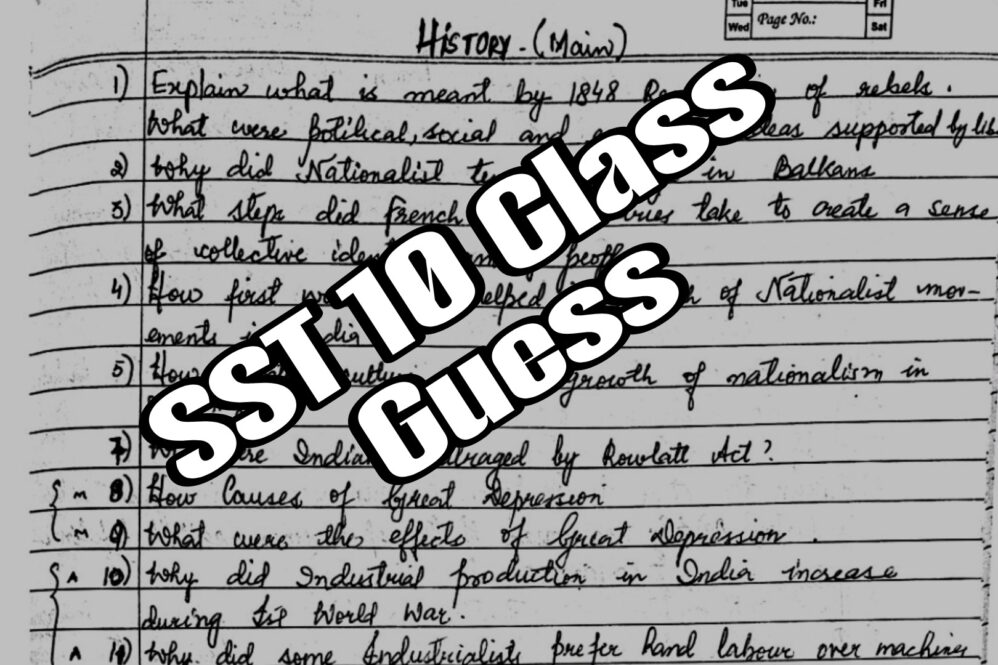 Tue Fri
Page No.:
Wed Sat
HISTORY - (Main)
1) Explain what is meant by 1848 of rebels.
What were political, social and ideas supported by lib
2) Why did Nationalist in Balkans
3) What steps did French take to create a sense
of collective
4) How first of Nationalist mov-
ements
5) How growth of nationalism in
7) Indian by Rowlatt Act?
{ m 8) How Causes of Great Depression
m 9) What were the effects of Great Depression.
{ A 10) Why did Industrial production in India increase
during Ist World War.
A 11) Why did some Industrialists prefer hand labour over machines
SST 10 Class
Guess